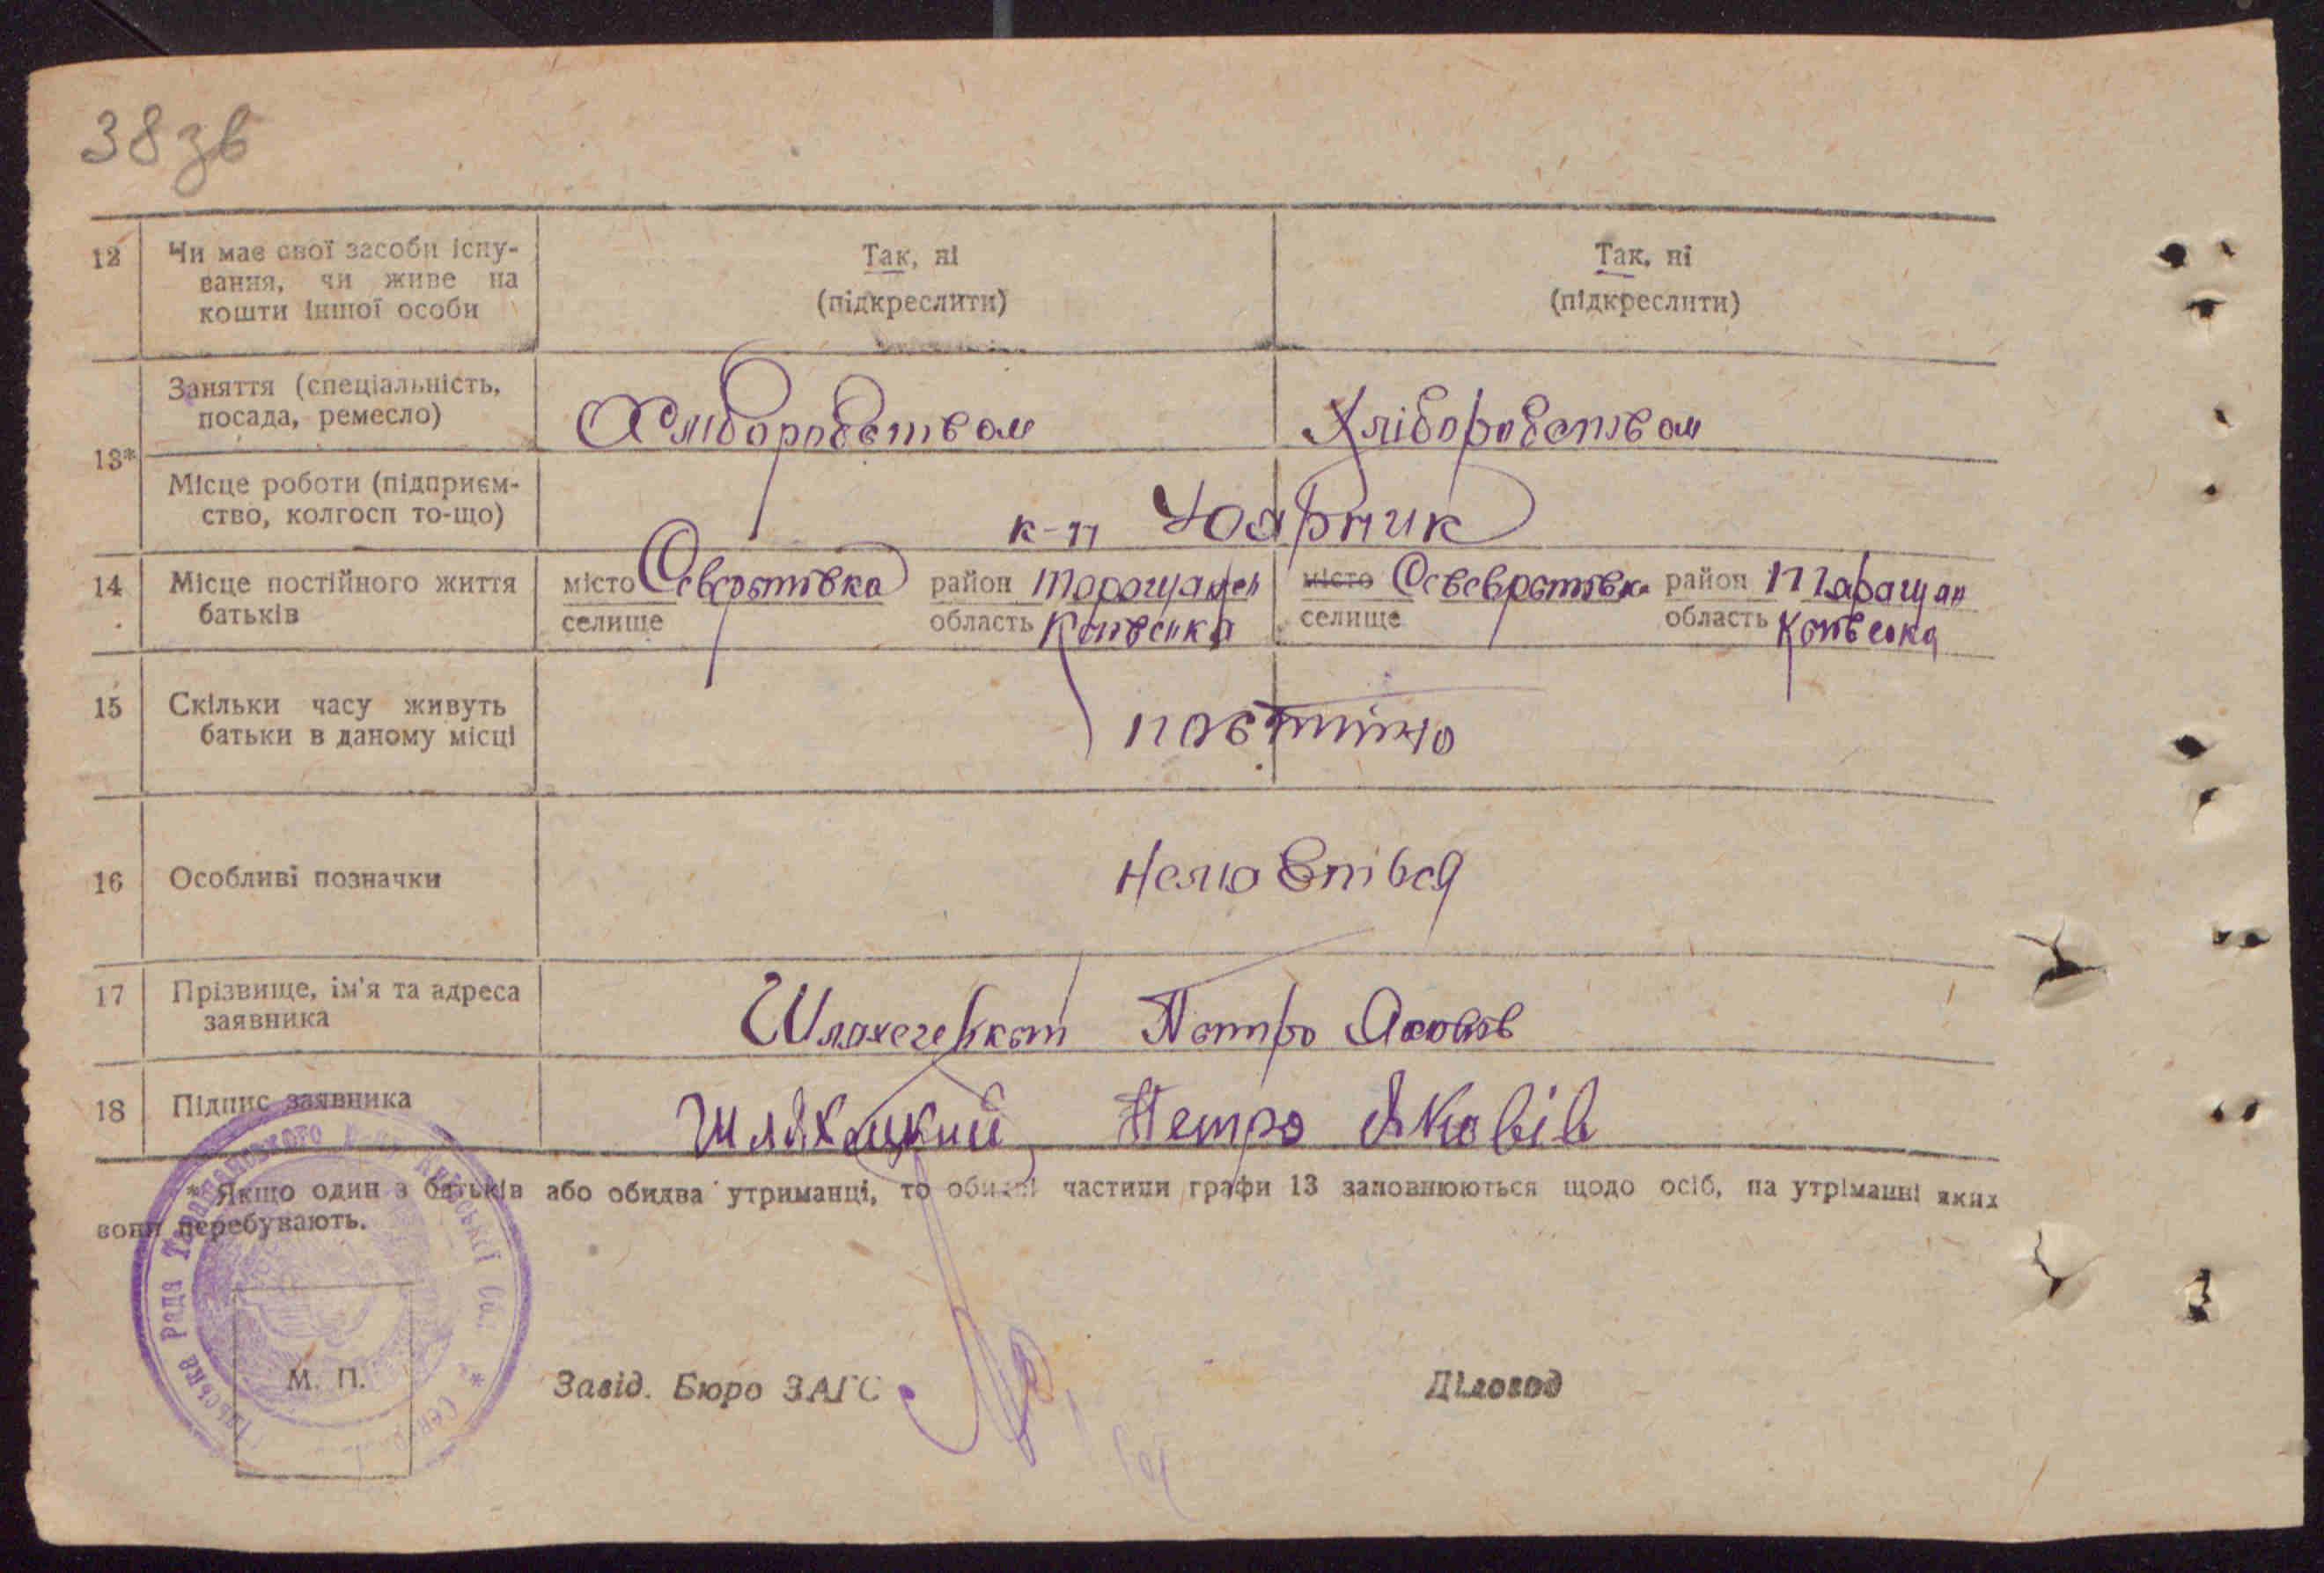 38 зв
12
Чи має свої засоби існу-
вання, чи живе на
кошти іншої особи
Так, ні
(підкреслити)
Так, ні
(підкреслити)
13*
Заняття (спеціальність,
посада, ремесло)
Хліборобством
Хліборобством
Місце роботи (підприєм-
ство, колгосп то-що)
к-п
14
Місце постійного життя
батьків
місто
район Таращан
селище
область Київська
місто
район Таращан
селище
область Київська
15
Скільки часу живуть
батьки в даному місці
постійно
16
Особливі позначки
17
Прізвище, ім'я та адреса
заявника
Петро Яковів
18
Підпис заявника
Шляхецкий Петро Яковів
* Якщо один з батьків або обидва утриманці, то обидві частини графи 13 заповнюються щодо осіб, на утріманні яких
вони перебувають.
М. П.
Завід. Бюро ЗАГС
Діловод